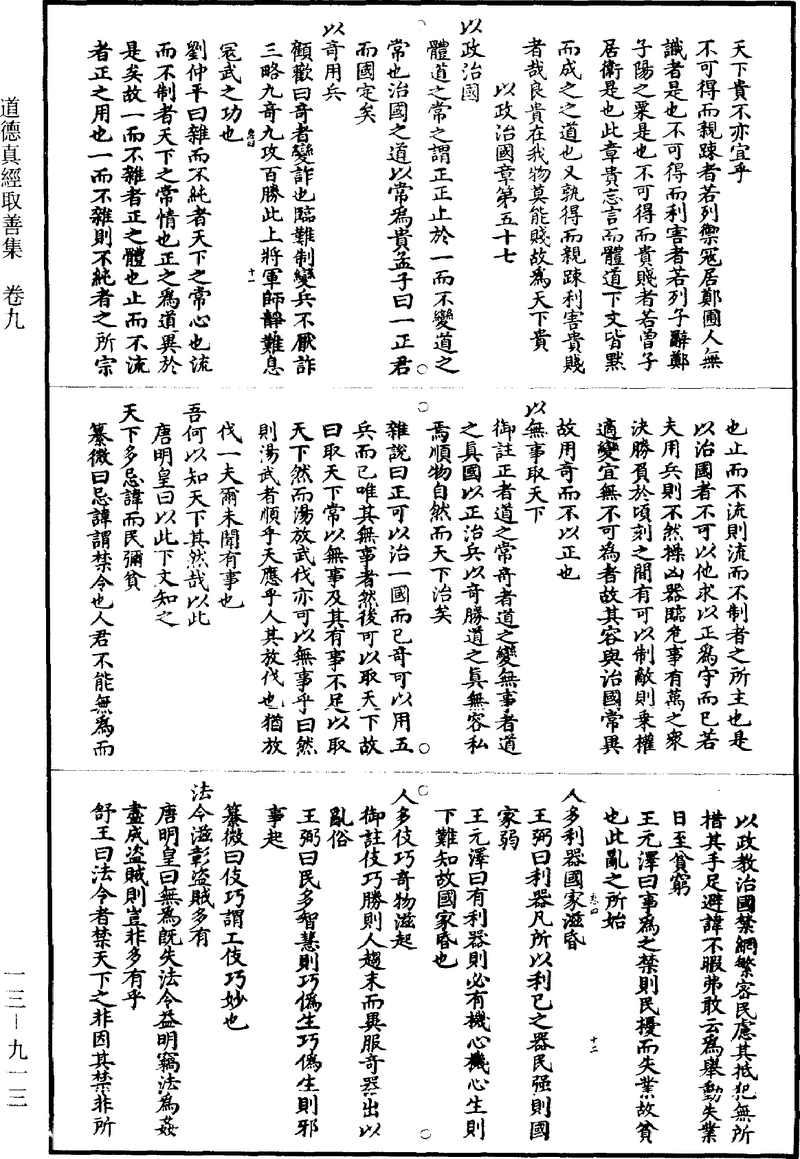 天下貴不亦宜乎
不可得而親踈者若列禦冦居鄭圃人無
識者是也不可得而利害者若列子辭鄭
子陽之粟是也不可得而貴賤者若曾子
居衛是也此章貴忘言而體道下文皆黙
而成之之道也又孰得而親踈利害貴賤
者哉良貴在我物莫能賤故為天下貴
以政治國章第五十七
以政治國
體道之常之謂正正止於一而不變道之
常也治國之道以常為貴孟子曰一正君
而國定矣
以奇用兵
顧歡曰奇者變詐也臨難制變兵不厭詐
三略九奇九攻百勝此上將軍師靜難息
冦武之功也
卷四
十一
劉仲平曰雜而不純者天下之常心也流
而不制者天下之常情也正之為道異於
是矣故一而不雜者正之體也止而不流
者正之用也一而不雜則不純者之所宗
也止而不流則流而不制者之所主也是
以治國者不可以他求以正為守而已若
夫用兵則不然操凶器臨危事有萬之衆
決勝負於頃刻之間有可以制敵則乗權
適變宜無不可為者故其容與治國常異
故用奇而不以正也
以無事取天下
御註正者道之常奇者道之變無事者道
之真國以正治兵以奇勝道之真無容私
焉順物自然而天下治矣
雜說曰正可以治一國而已奇可以用五
兵而已唯其無事者然後可以取天下故
曰取天下常以無事及其有事不足以取
天下然而湯放武伐亦可以無事乎曰然
則湯武者順乎天應乎人其放伐也猶放
伐一夫爾未聞有事也
吾何以知天下其然哉以此
唐明皇曰以此下文知之
天下多忌諱而民彌貧
纂微曰忌諱謂禁令也人君不能無為而
以政教治國禁網繁密民慮其抵犯無所
措其手足避諱不暇弗敢云為舉動失業
日至貧窮
王元澤曰事為之禁則民擾而失業故貧
也此亂之所始
卷四
十二
人多利器國家滋昏
王弼曰利器凡所以利己之器民强則國
家弱
王元澤曰有利器則必有機心機心生則
下難知故國家昏也
人多伎巧奇物滋起
御註伎巧勝則人趨末而異服奇器出以
亂俗
王弼曰民多智慧則巧偽生巧偽生則邪
事起
纂微曰伎巧謂工伎巧妙也
法令滋彰盜賊多有
唐明皇曰無為既失法令益明竊法為姦
盡成盜賊則豈非多有乎
舒王曰法令者禁天下之非因其禁非所
道德真經取善集　卷九
一三—九一三